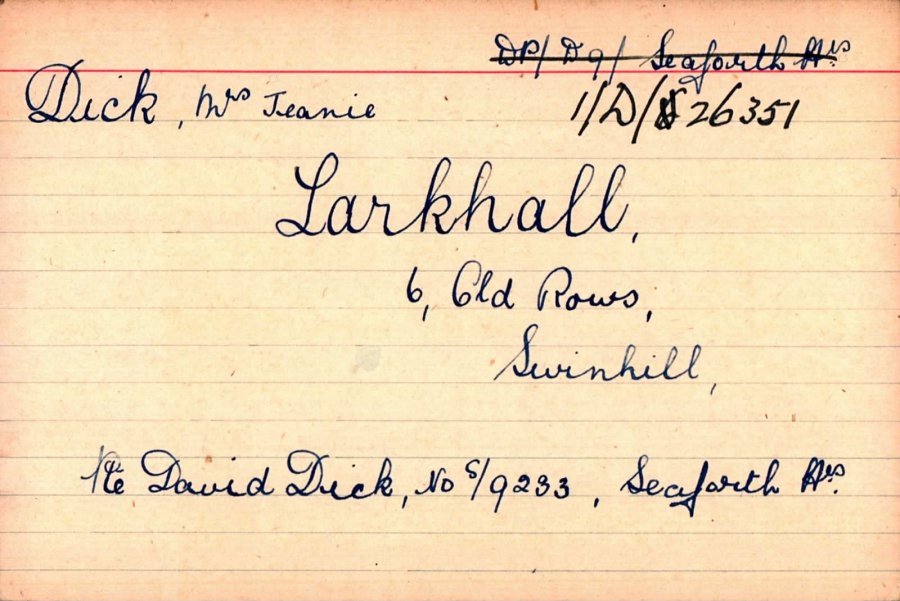 DP/ D9/ Seaforth Hrs
Dick, Mrs Jeanie
1/D/ 26351
Larkhall,
6, Old Rows,
Swinhill,
Pte David Dick, No S/9233, Seaforth Hrs.